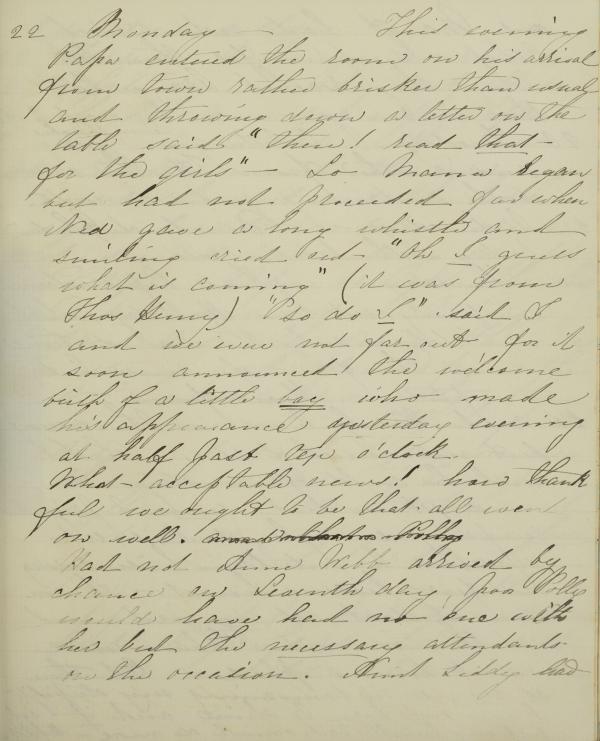 22 Monday — This evening
Papa entered the room on his arrival
from town rather brisker than usual
and throwing down a letter on the
table said "there! read that
for the girls" — So Mama began
but had not proceeded far when
Ned gave a long whistle and
smiling cried out "Oh I guess
what is coming" (it was from
Thos Henry) "so do I" said I
and we were not far out for it
soon announced the welcome
birth of a little boy who made
his appearance yesterday evening
at half past ten o'clock.
What acceptable news! how thank
ful we ought to be that all went
on well.
Had not Anne Webb arrived by
chance on Seventh day, poor Polly
would have had no one with
her but the necessary attendants
on the occasion. Aunt Liddy had